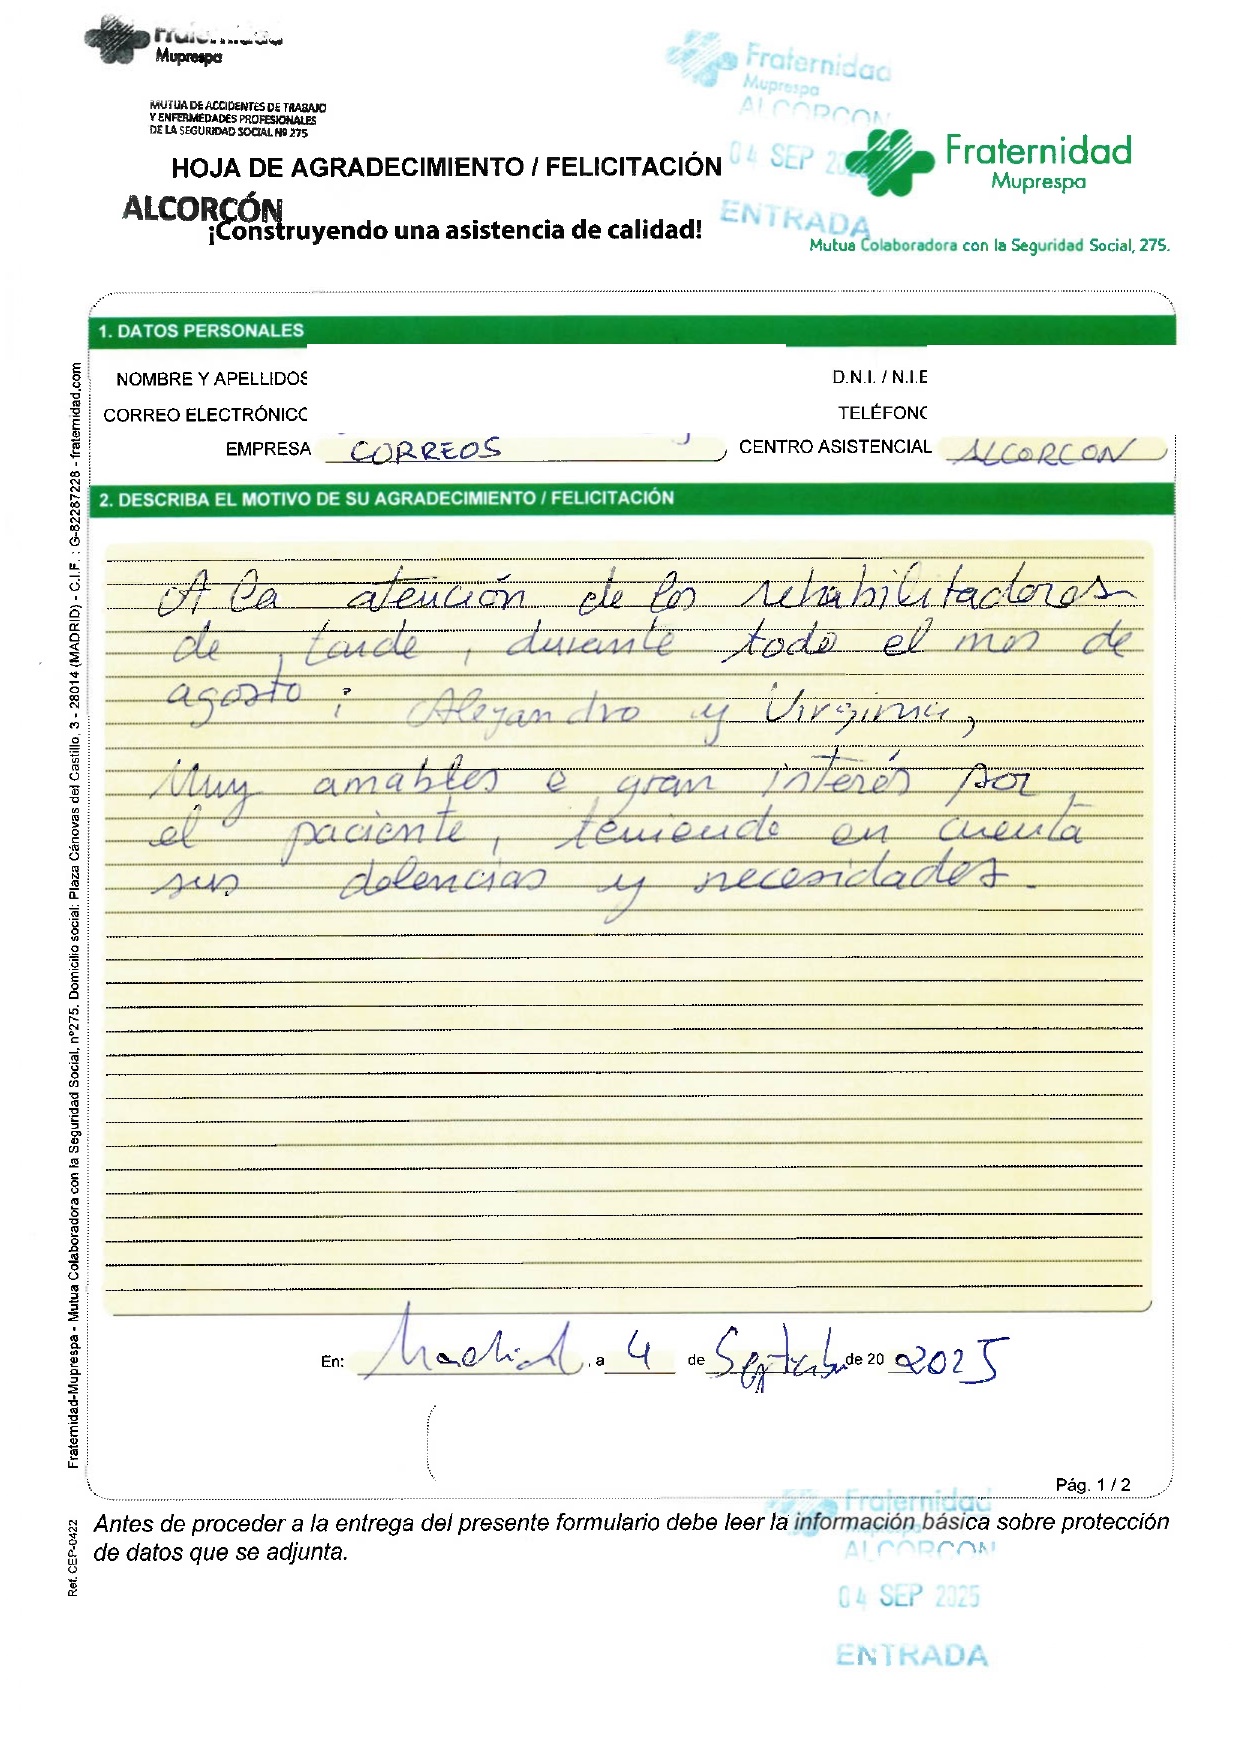 Fraternidad
Muprespa
MUTUA DE ACCIDENTES DE TRABAJO
Y ENFERMEDADES PROFESIONALES
DE LA SEGURIDAD SOCIAL Nº 275
Fraternidad
Muprespa
ALCORCON
04 SEP
ENTRADA
HOJA DE AGRADECIMIENTO / FELICITACIÓN
ALCORCÓN
¡Construyendo una asistencia de calidad!
Fraternidad
Muprespa
Mutua Colaboradora con la Seguridad Social, 275.
1. DATOS PERSONALES
NOMBRE Y APELLIDOS
D.N.I. / N.I.E
CORREO ELECTRÓNICO
TELÉFONO
EMPRESA CORREOS
CENTRO ASISTENCIAL ALCORCON
2. DESCRIBA EL MOTIVO DE SU AGRADECIMIENTO / FELICITACIÓN
A la atención de los rehabilitadores
de tarde, durante todo el mes de
agosto: Alejandro y Virginia,
Muy amables e gran interés por
el paciente, teniendo en cuenta
sus dolencias y necesidades.
En: Madrid, a 4 de Septiembre de 20 2025
Pág. 1 / 2
Antes de proceder a la entrega del presente formulario debe leer la información básica sobre protección
de datos que se adjunta.
Fraternidad
Muprespa
ALCORCON
04 SEP 2025
ENTRADA
Fraternidad-Muprespa - Mutua Colaboradora con la Seguridad Social, nº275. Domicilio social: Plaza Cánovas del Castillo, 3 - 28014 (MADRID) - C.I.F. : G-82287228 - fraternidad.com
Ref. CEP-0422